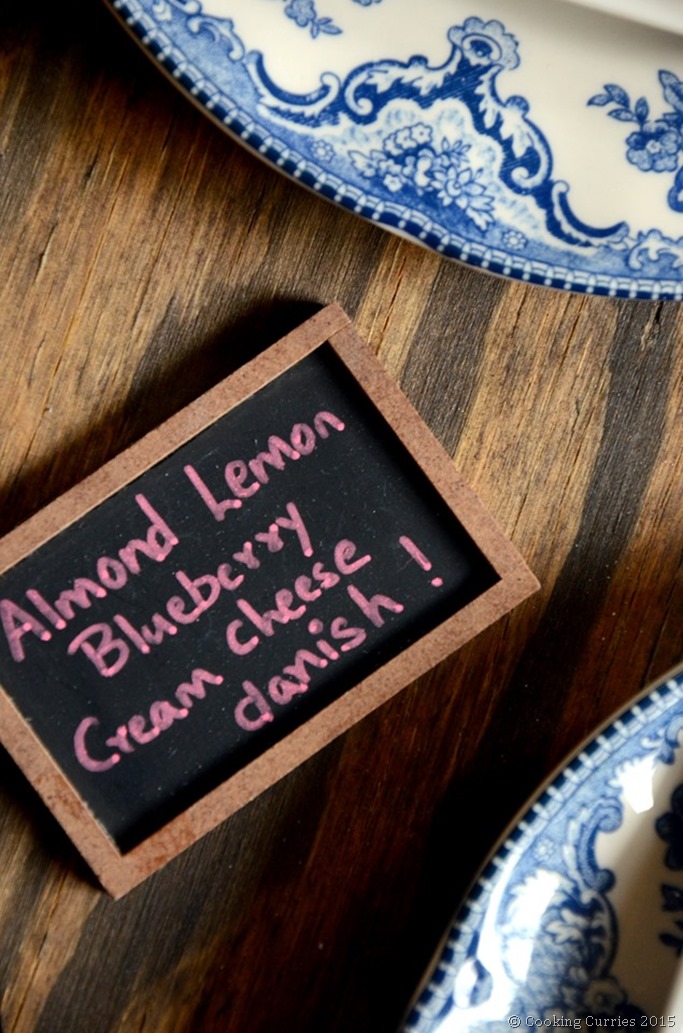 Almond Lemon
Blueberry
Cream cheese
danish !
© Cooking Curries 2015